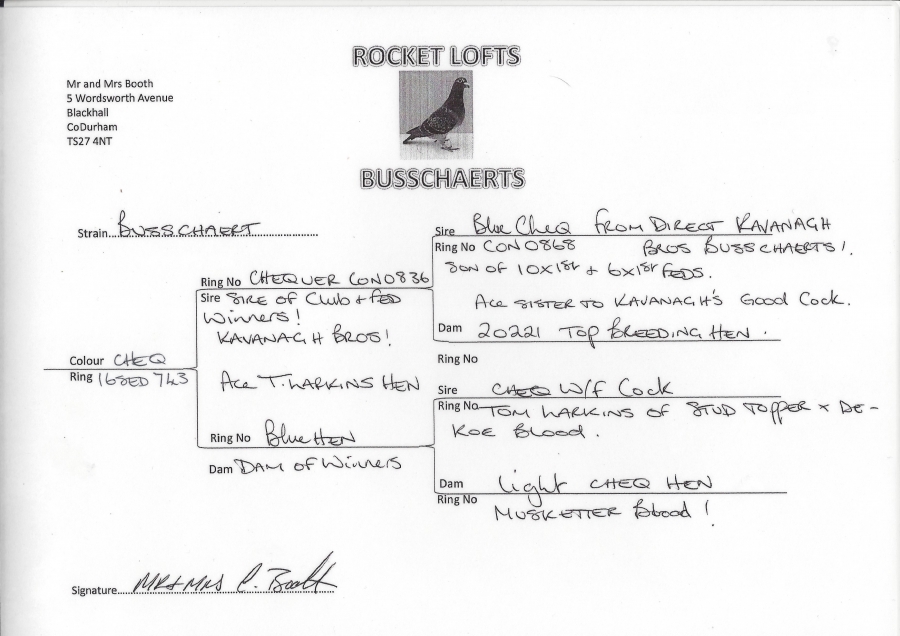 ROCKET LOFTS
Mr and Mrs Booth
5 Wordsworth Avenue
Blackhall
CoDurham
TS27 4NT
BUSSCHAERTS
Strain....BUSSCHAERT
Sire Blue CHEQ FROM DIRECT KAVANAGH
Ring No CON0868 BROS BUSSCHAERTS!
SON OF 10x1st + 6x1st FEDS.
Ring No CHEQUER CON0836
Sire SIRE OF Club + FED
Winners!
KAVANAGH BROS!
Ace SISTER TO KAVANAGH'S Good Cock.
Dam 20221 TOP BREEDING HEN.
Ring No
Colour CHEQ
Ring 16SED 743
Ace T. LARKINS HEN
Sire CHEQ W/f Cock
Ring No TOM LARKINS OF STUD TOPPER x DE-
KOE Blood.
Ring No Blue HEN
Dam DAM OF Winners
Dam light CHEQ HEN
Ring No
MUSKETTER Blood!
Signature....MR+MRS C. Booth